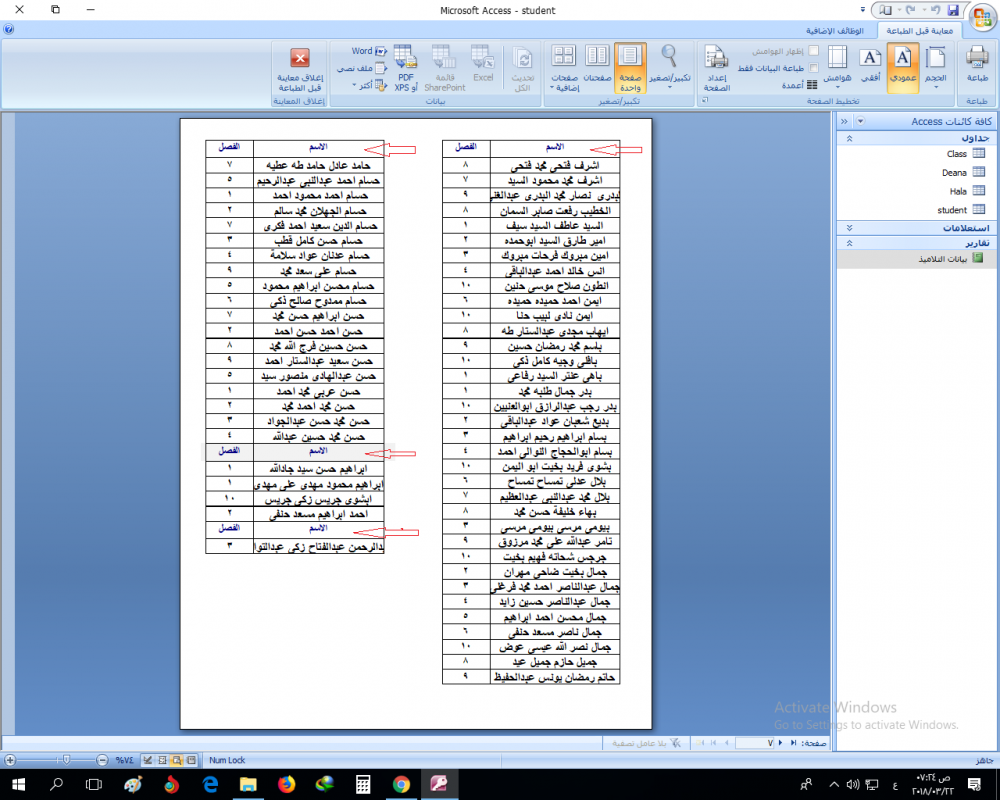 Microsoft Access - student
معاينة قبل الطباعة
الوظائف الإضافية
طباعة
الحجم
عمودي
أفقي
هوامش
إظهار الهوامش
طباعة البيانات فقط
أعمدة
إعداد الصفحة
تكبير/تصغير
صفحة واحدة
صفحتان
صفحات إضافية
تحديث الكل
Excel
قائمة SharePoint
PDF أو XPS
Word
ملف نصي
أكثر
إغلاق معاينة قبل الطباعة
طباعة
تخطيط الصفحة
تكبير/تصغير
بيانات
إغلاق المعاينة
كافة كائنات Access
جداول
Class
Deana
Hala
student
استعلامات
تقارير
بيانات التلاميذ
الاسم الفصل
اشرف فتحى محمد فتحى ٨
اشرف محمد محمود السيد ٧
لبدرى نصار محمد البدرى عبدالغنى ٩
الخطيب رفعت صابر السمان ٨
السيد عاطف السيد سيف ١
امير طارق السيد ابوحمده ٢
امين مبروك فرحات مبروك ٣
انس خالد احمد عبدالباقى ٤
انطون صلاح موسى حنين ١٠
ايمن احمد حميده حميده ٦
ايمن نادى لبيب حنا ١٠
ايهاب مجدى عبدالستار طه ٨
باسم محمد رمضان حسين ٩
باقلى وجيه كامل ذكى ١٠
باهى عنتر السيد رفاعى ١
بدر جمال طلبه محمد ١
بدر رجب عبدالرازق ابوالعنيين ١٠
بديع شعبان عواد عبدالباقى ٢
بسام ابراهيم رحيم ابراهيم ٣
بسام ابوالحجاج النوالى احمد ٤
بشوى فريد بخيت ابو اليمن ١٠
بلال عدلى تمساح تمساح ٦
بلال محمد عبدالنبى عبدالعظيم ٧
بهاء خليفة حسن محمد ٨
بيومى مرسى بيومى مرسى ٣
تامر عبدالله على محمد مرزوق ٩
جرجس شحاته فهيم بخيت ١٠
جمال بخيت ضاحى مهران ٢
جمال عبدالناصر احمد محمد فرغلى ٣
جمال عبدالناصر حسين زايد ٤
جمال محسن احمد ابراهيم ٥
جمال ناصر مسعد حنفى ٦
جمال نصر الله عيسى عوض ١٠
جميل حازم جميل عيد ٨
حاتم رمضان يونس عبدالحفيظ ٩
الاسم الفصل
حامد عادل حامد طه عطيه ٧
حسام احمد عبدالنبى عبدالرحيم ٥
حسام احمد محمود احمد ١
حسام الجهلان محمد سالم ٢
حسام الدين سعيد احمد فكرى ٧
حسام حسن كامل قطب ٣
حسام عدنان عواد سلامة ٤
حسام على سعد محمد ٩
حسام محسن ابراهيم محمود ٥
حسام ممدوح صالح ذكى ٦
حسن ابراهيم حسن محمد ٧
حسن احمد حسن احمد ٢
حسن حسين فرج الله محمد ٨
حسن سعيد عبدالستار احمد ٩
حسن عبدالهادى منصور سيد ٥
حسن عربى محمد احمد ١
حسن محمد احمد محمد ٢
حسن محمد حسن عبدالجواد ٣
حسن محمد حسين عبدالله ٤
الاسم الفصل
ابراهيم حسن سيد جادالله ١
ابراهيم محمود مهدى على مهدى ١
ابشوى جريس زكى جريس ١٠
احمد ابراهيم مسعد حنفى ٢
الاسم الفصل
بدالرحمن عبدالفتاح زكى عبدالتوا ٣
Activate Windows
Go to Settings to activate Windows.
صفحة: ٧
بلا عامل تصفية
جاهز
Num Lock
٧٤%
ع
٠٧:٢٤ ص
٢٠١٨/٠٣/٢٢